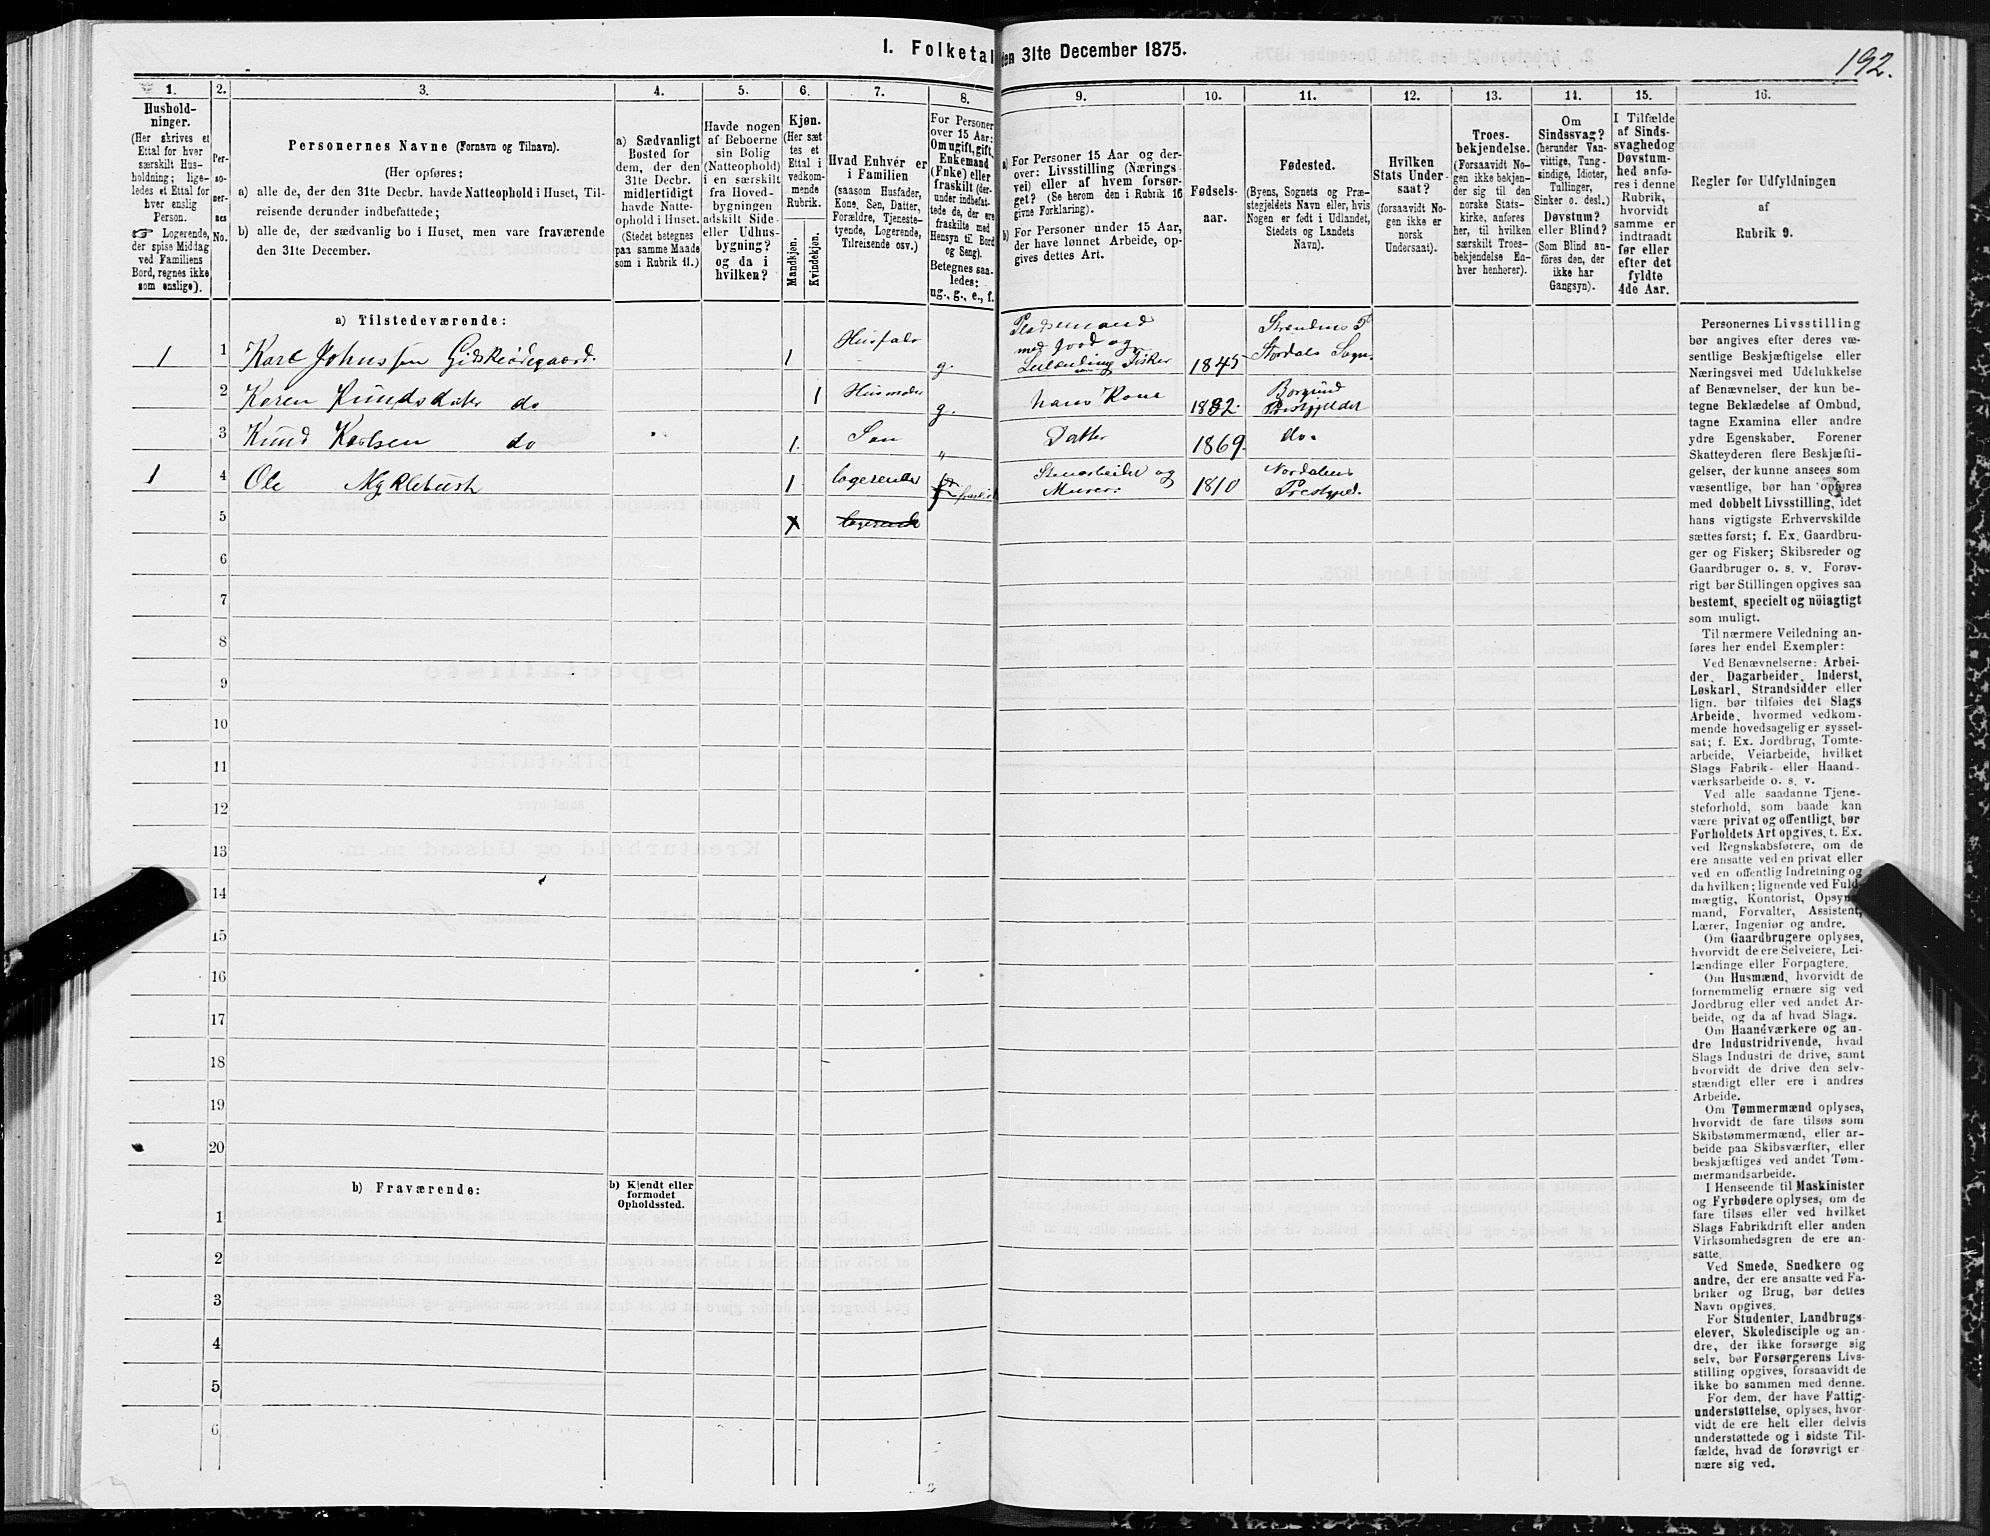 192.
I. Folketal den 31te December 1875.
1. 2. 3. 4. 5. 6. 7. 8. 9. 10. 11. 12. 13. 14. 15. 16.
Hushold-
ninger.
(Her skrives et
Ettal for hver
særskilt Hus-
holdning; lige-
ledes et Ettal for
hver enslig
Person.
☞ Logerende,
der spise Middag
ved Familiens
Bord, regnes ikke
som enslige).
Per-
so-
ner-
nes
No.
Personernes Navne (Fornavn og Tilnavn).
(Her opføres:
a) alle de, der den 31te Decbr. havde Natteophold i Huset, Til-
reisende derunder indbefattede;
b) alle de, der sædvanlig bo i Huset, men vare fraværende
den 31te December.
a) Sædvanligt
Bosted for
dem, der den
31te Decbr.
midlertidigt
havde Natte-
ophold i Huset.
(Stedet betegnes
paa samme Maade
som i Rubrik 11.)
Havde nogen
af Beboerne
sin Bolig
(Natteophold)
i en særskilt
fra Hoved-
bygningen
adskilt Side-
eller Udhus-
bygning?
og da i
hvilken?
Kjøn.
(Her sæt-
tes et
Ettal i
vedkom-
mende
Rubrik.
Mandkjøn.
Kvindekjøn.
Hvad Enhver er
i Familien
(saasom Husfader,
Kone, Søn, Datter,
Forældre, Tjeneste-
tyende, Logerende,
Tilreisende osv.)
For Personer
over 15 Aar:
Om ugift, gift,
Enkemand
(Enke) eller
fraskilt (der-
under indbefat-
tede de, der ere
fraskilte med
Hensyn til Bord
og Seng).
Betegnes saa-
ledes:
ug., g., e., f.
a) For Personer 15 Aar og der-
over: Livsstilling (Nærings-
vei) eller af hvem forsør-
get? (Se herom den i Rubrik 16
givne Forklaring).
b) For Personer under 15 Aar,
der have lønnet Arbeide, op-
gives dettes Art.
Fødsels-
aar.
Fødested.
(Byens, Sognets og Præ-
stegjeldets Navn eller, hvis
Nogen er født i Udlandet,
Stedets og Landets
Navn).
Hvilken
Stats Under-
saat?
(forsaavidt No-
gen ikke er
norsk
Undersaat).
Troes-
bekjendelse.
(Forsaavidt No-
gen ikke bekjen-
der sig til den
norske Stats-
kirke, anføres
her, til hvilken
særskilt Troes-
bekjendelse En-
hver henhører).
Om
Sindssvag?
(herunder Van-
vittige, Tung-
sindige, Idioter,
Tullinger,
Sinker o. desl.)
Døvstum?
eller Blind?
(Som Blind an-
føres den, der
ikke har
Gangsyn).
I Tilfælde
af Sinds-
svaghed og
Døvstum-
hed anfø-
res i denne
Rubrik,
hvorvidt
samme er
indtraadt
før eller
efter det
fyldte
4de Aar.
Regler for Udfyldningen
af
Rubrik 9.
a) Tilstedeværende:
1 1 Karl Johnssen Gidskeødegaard. 1 Husfader g. Pladsemand med Jord og Leilending Fisker 1845 Strandens P Stordals Sogn.
2 Karen Knudsdatter do 1 Husmoder g. hans Kone 1832. Borgund Præstgjeldet
3 Knud Karlsen do 1. Søn „ Datter 1869. do.
1 4 Ole Myklebust 1 logerende fraskilt Stenarbeider og Murer: 1810 Nordalens Prestegjel.
5 x logerende
6
7
8
9
10
11
12
13
14
15
16
17
18
19
20
b) Fraværende:
b) Kjendt eller
formodet
Opholdssted.
1
2
3
4
5
6
Personernes Livsstilling
bør angives efter deres væ-
sentlige Beskjæftigelse eller
Næringsvei med Udelukkelse
af Benævnelser, der kun be-
tegne Beklædelse af Ombud,
tagne Examina eller andre
ydre Egenskaber. Forener
Skatteyderen flere Beskjæfti-
gelser, der kunne ansees som
væsentlige, bør han opføres
med dobbelt Livsstilling, idet
hans vigtigste Erhvervskilde
sættes først; f. Ex. Gaardbru-
ger og Fisker; Skibsreder og
Gaardbruger o. s. v. Forøv-
rigt bør Stillingen opgives saa
bestemt, specielt og nöiagtigt
som muligt.
Til nærmere Veiledning an-
føres her endel Exempler:
Ved Benævnelserne: Arbei-
der, Dagarbeider, Inderst,
Løskarl, Strandsidder eller
lign. bør tilføies det Slags
Arbeide, hvormed vedkom-
mende hovedsagelig er syssel-
sat; f. Ex. Jordbrug, Tomte-
arbeide, Veiarbeide, hvilket
Slags Fabrik- eller Haand-
værksarbeide o. s. v.
Ved alle saadanne Tjene-
steforhold, som baade kan
være privat og offentligt, bør
Forholdets Art opgives, t. Ex.
ved Regnskabsførere, om de
ere ansatte ved en privat eller
ved en offentlig Indretning og
da hvilken; lignende ved Fuld-
mægtig, Kontorist, Opsyns-
mand, Forvalter, Assistent,
Lærer, Ingeniør og andre.
Om Gaardbrugere oplyses,
hvorvidt de ere Selveiere, Lei-
lændinge eller Forpagtere.
Om Husmænd, hvorvidt de
fornemmelig ernære sig ved
Jordbrug eller ved andet Ar-
beide, og da af hvad Slags.
Om Haandværkere og an-
dre Industridrivende, hvad
Slags Industri de drive, samt
hvorvidt de drive den selv-
stændigt eller ere i andres
Arbeide.
Om Tømmermænd oplyses,
hvorvidt de fare tilsøs som
Skibstømmermænd, eller ar-
beide paa Skibsværfter, eller
beskjæftiges ved andet Tøm-
mermandsarbeide.
I Henseende til Maskinister
og Fyrbødere oplyses, om de
fare tilsøs eller ved hvilket
Slags Fabrikdrift eller anden
Virksomhedsgren de ere an-
satte.
Ved Smede, Snedkere og
andre, der ere ansatte ved Fa-
briker og Brug, bør dettes
Navn opgives.
For Studenter, Landbrugs-
elever, Skoledisciple og an-
dre, der ikke forsørge sig
selv, bør Forsørgerens Livs-
stilling opgives, forsaavidt de
ikke bo sammen med denne.
For dem, der have Fattig-
understøttelse, oplyses, hvor-
vidt de ere helt eller delvis
understøttede og i sidste Til-
fælde, hvad de forøvrigt er-
nære sig ved.